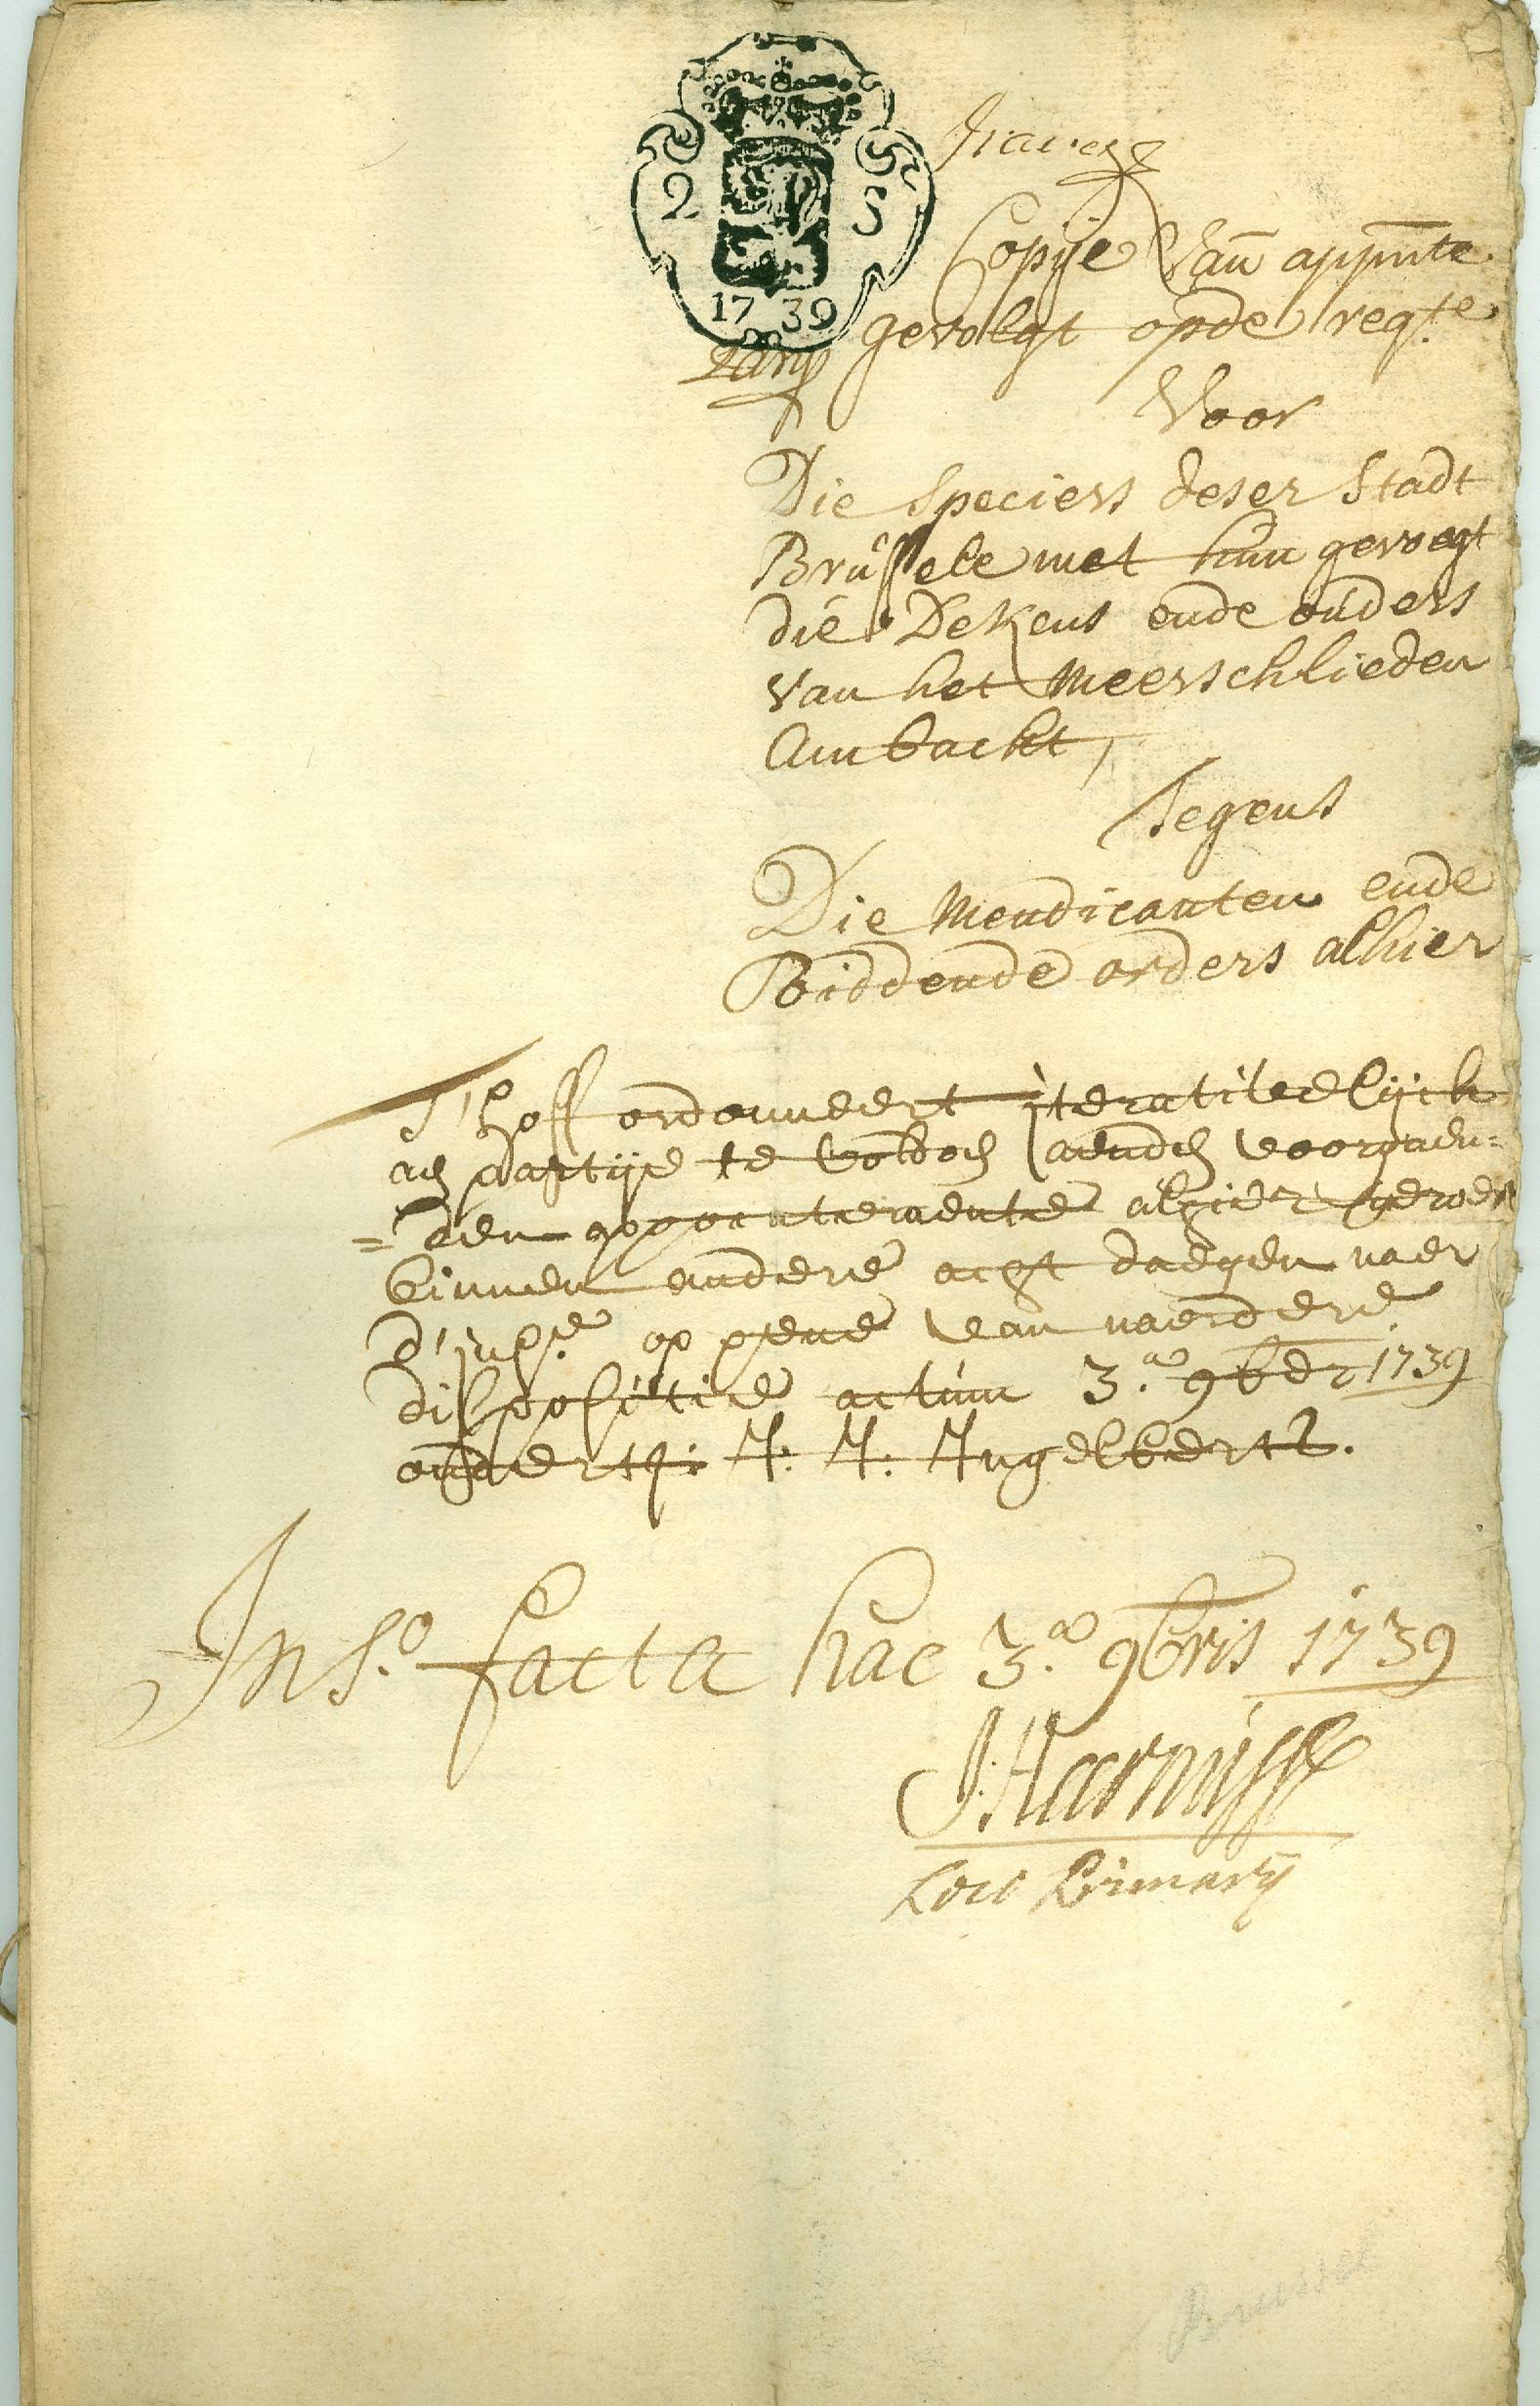 2 S
1739
Copije van appnte
gevolgt opde reqte
Voor
Die Speciers deser Stadt
Brussele met hun gevoegt
die Dekens ende ouders
van het Meerschlieden
Ambackt,
Tegens
Die Mendicanten ende
Biddende orders alhier
T'hoff ordonneert iterativelijck
aen partije te voldoen aenden voorgaen=
=den appointemente alhier gewesen
binnen andere acht daegen naer
d'insie op pene van naerdere
dispositie actum 3.a 9ber 1739
ondert: J: J: Ingelbertz.
Ins.o facta hac 3.a 9bris 1739
Loco Primarij
Brussel